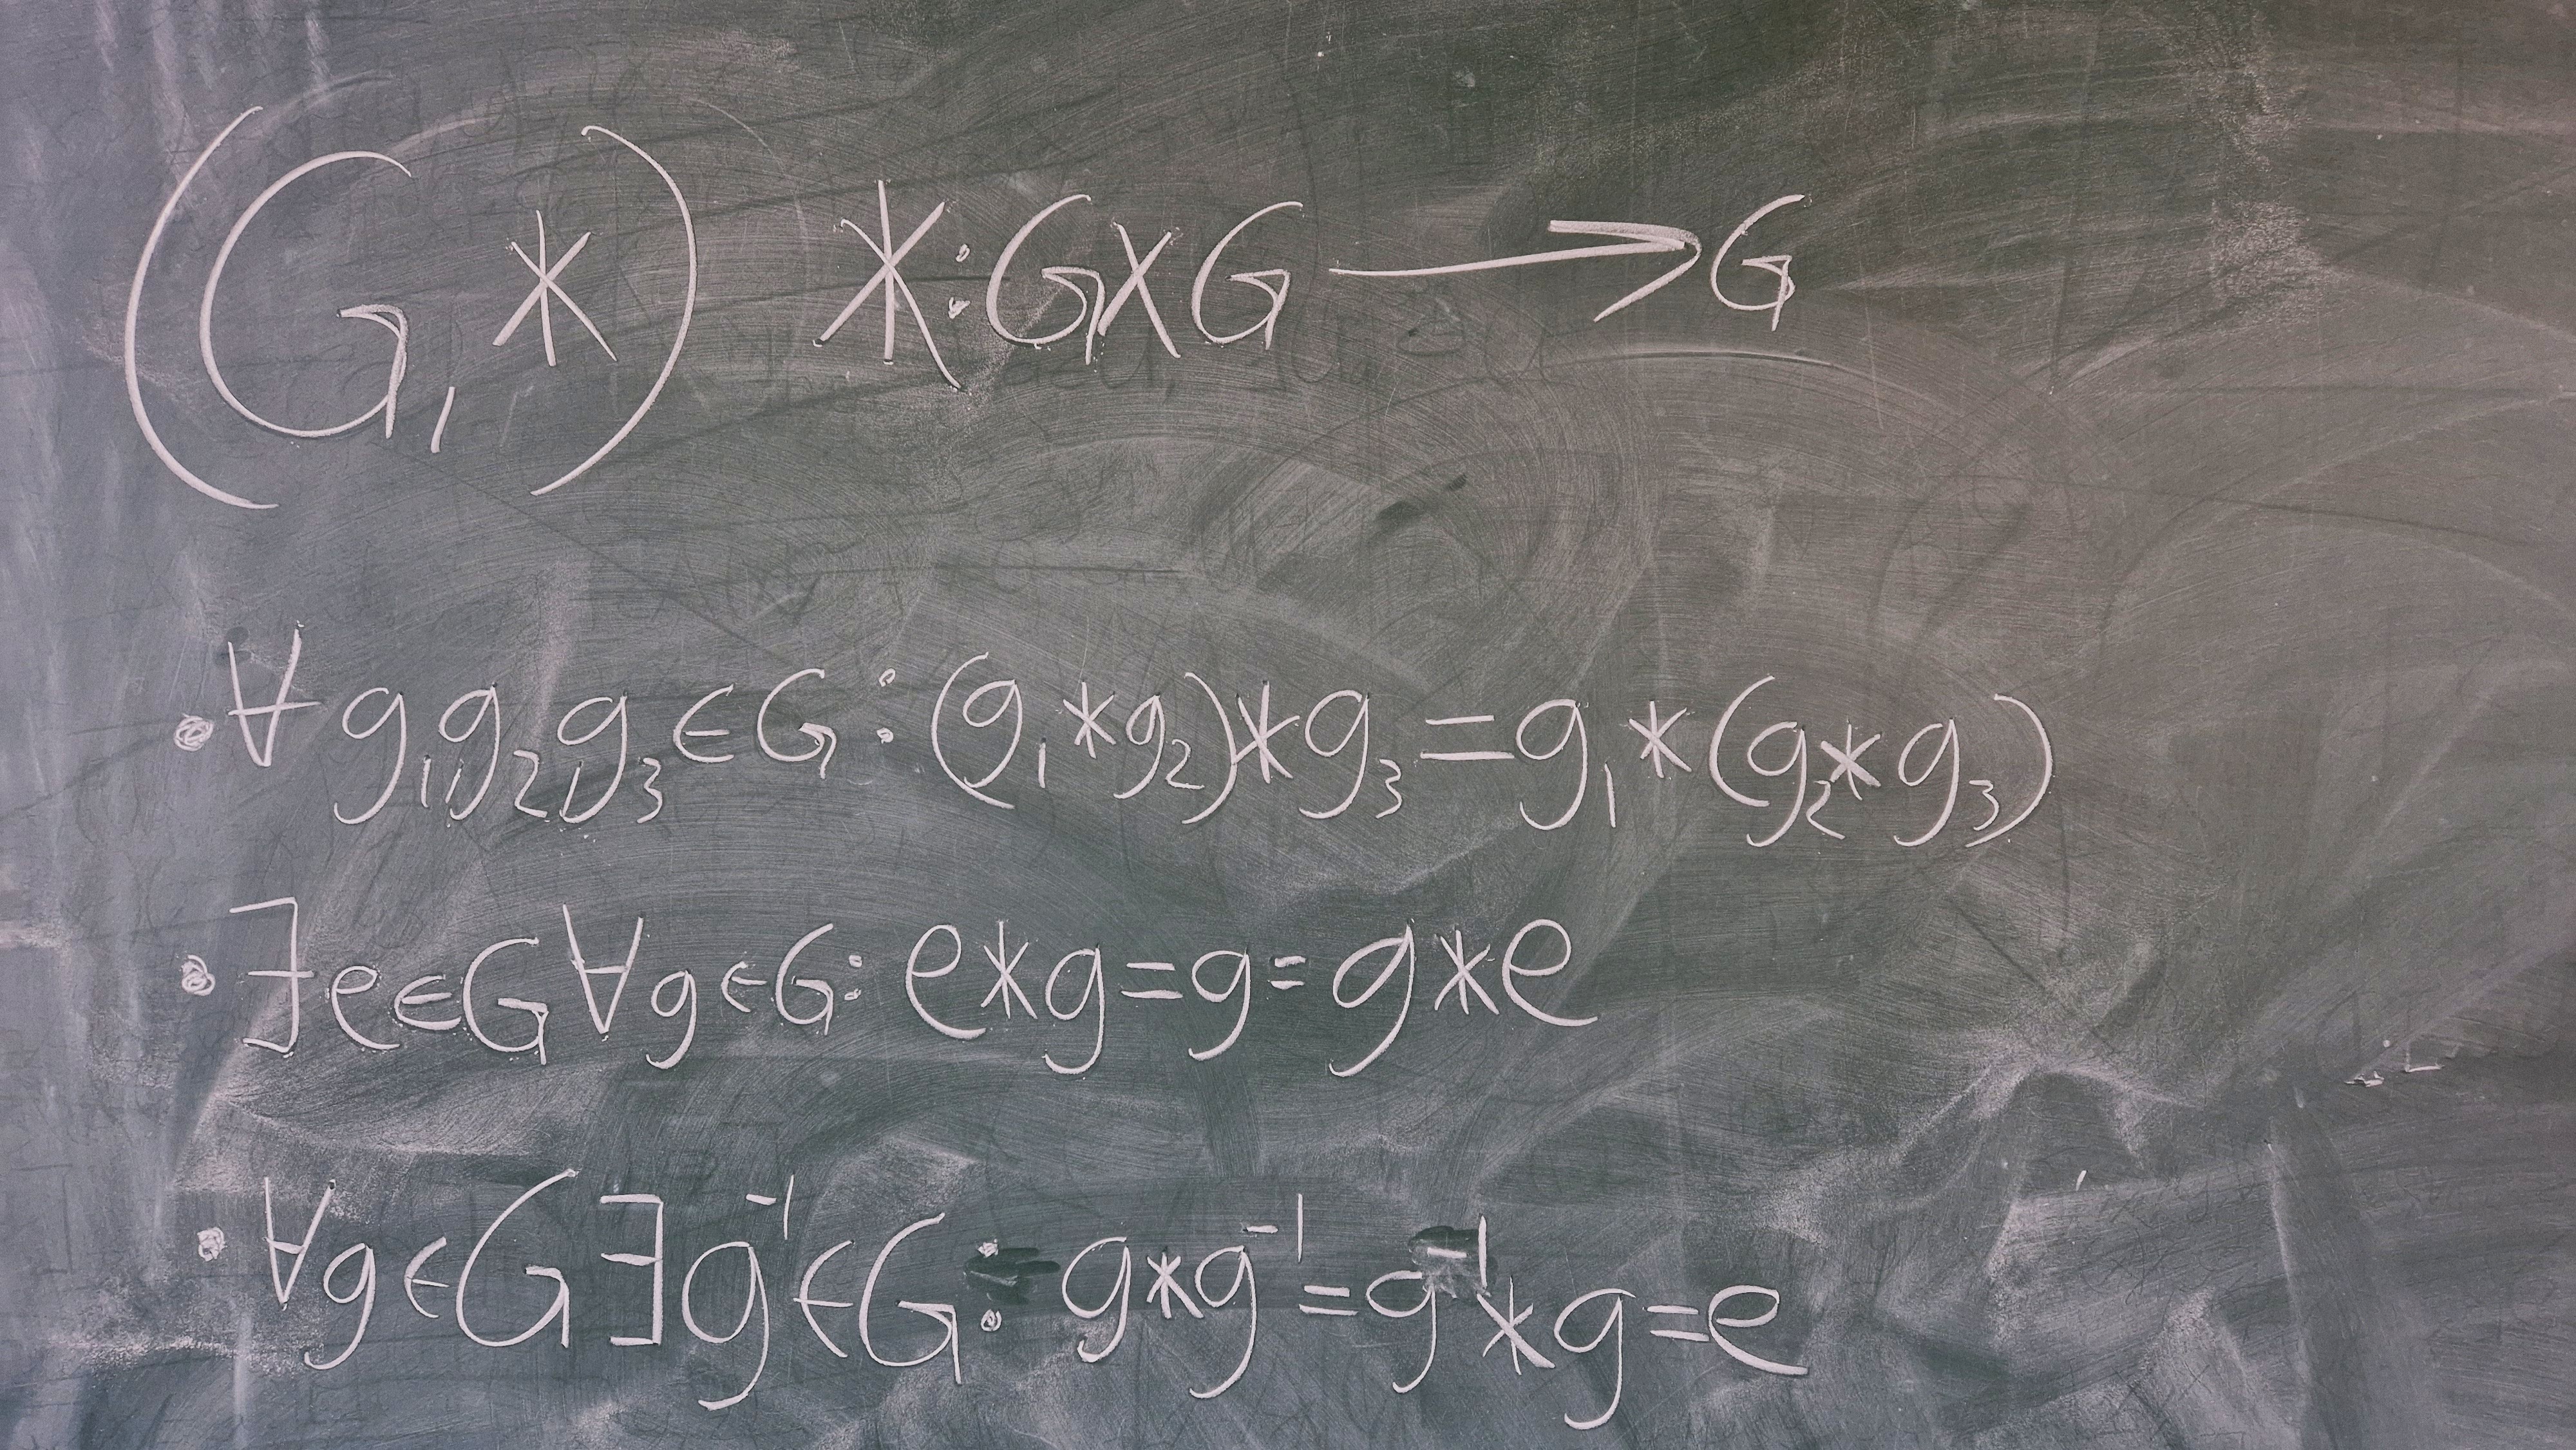 (G, *) *: G×G → G
• ∀ g₁, g₂, g₃ ∈ G: (g₁ * g₂) * g₃ = g₁ * (g₂ * g₃)
• ∃ e ∈ G ∀ g ∈ G: e * g = g = g * e
• ∀ g ∈ G ∃ g⁻¹ ∈ G: g * g⁻¹ = g⁻¹ * g = e